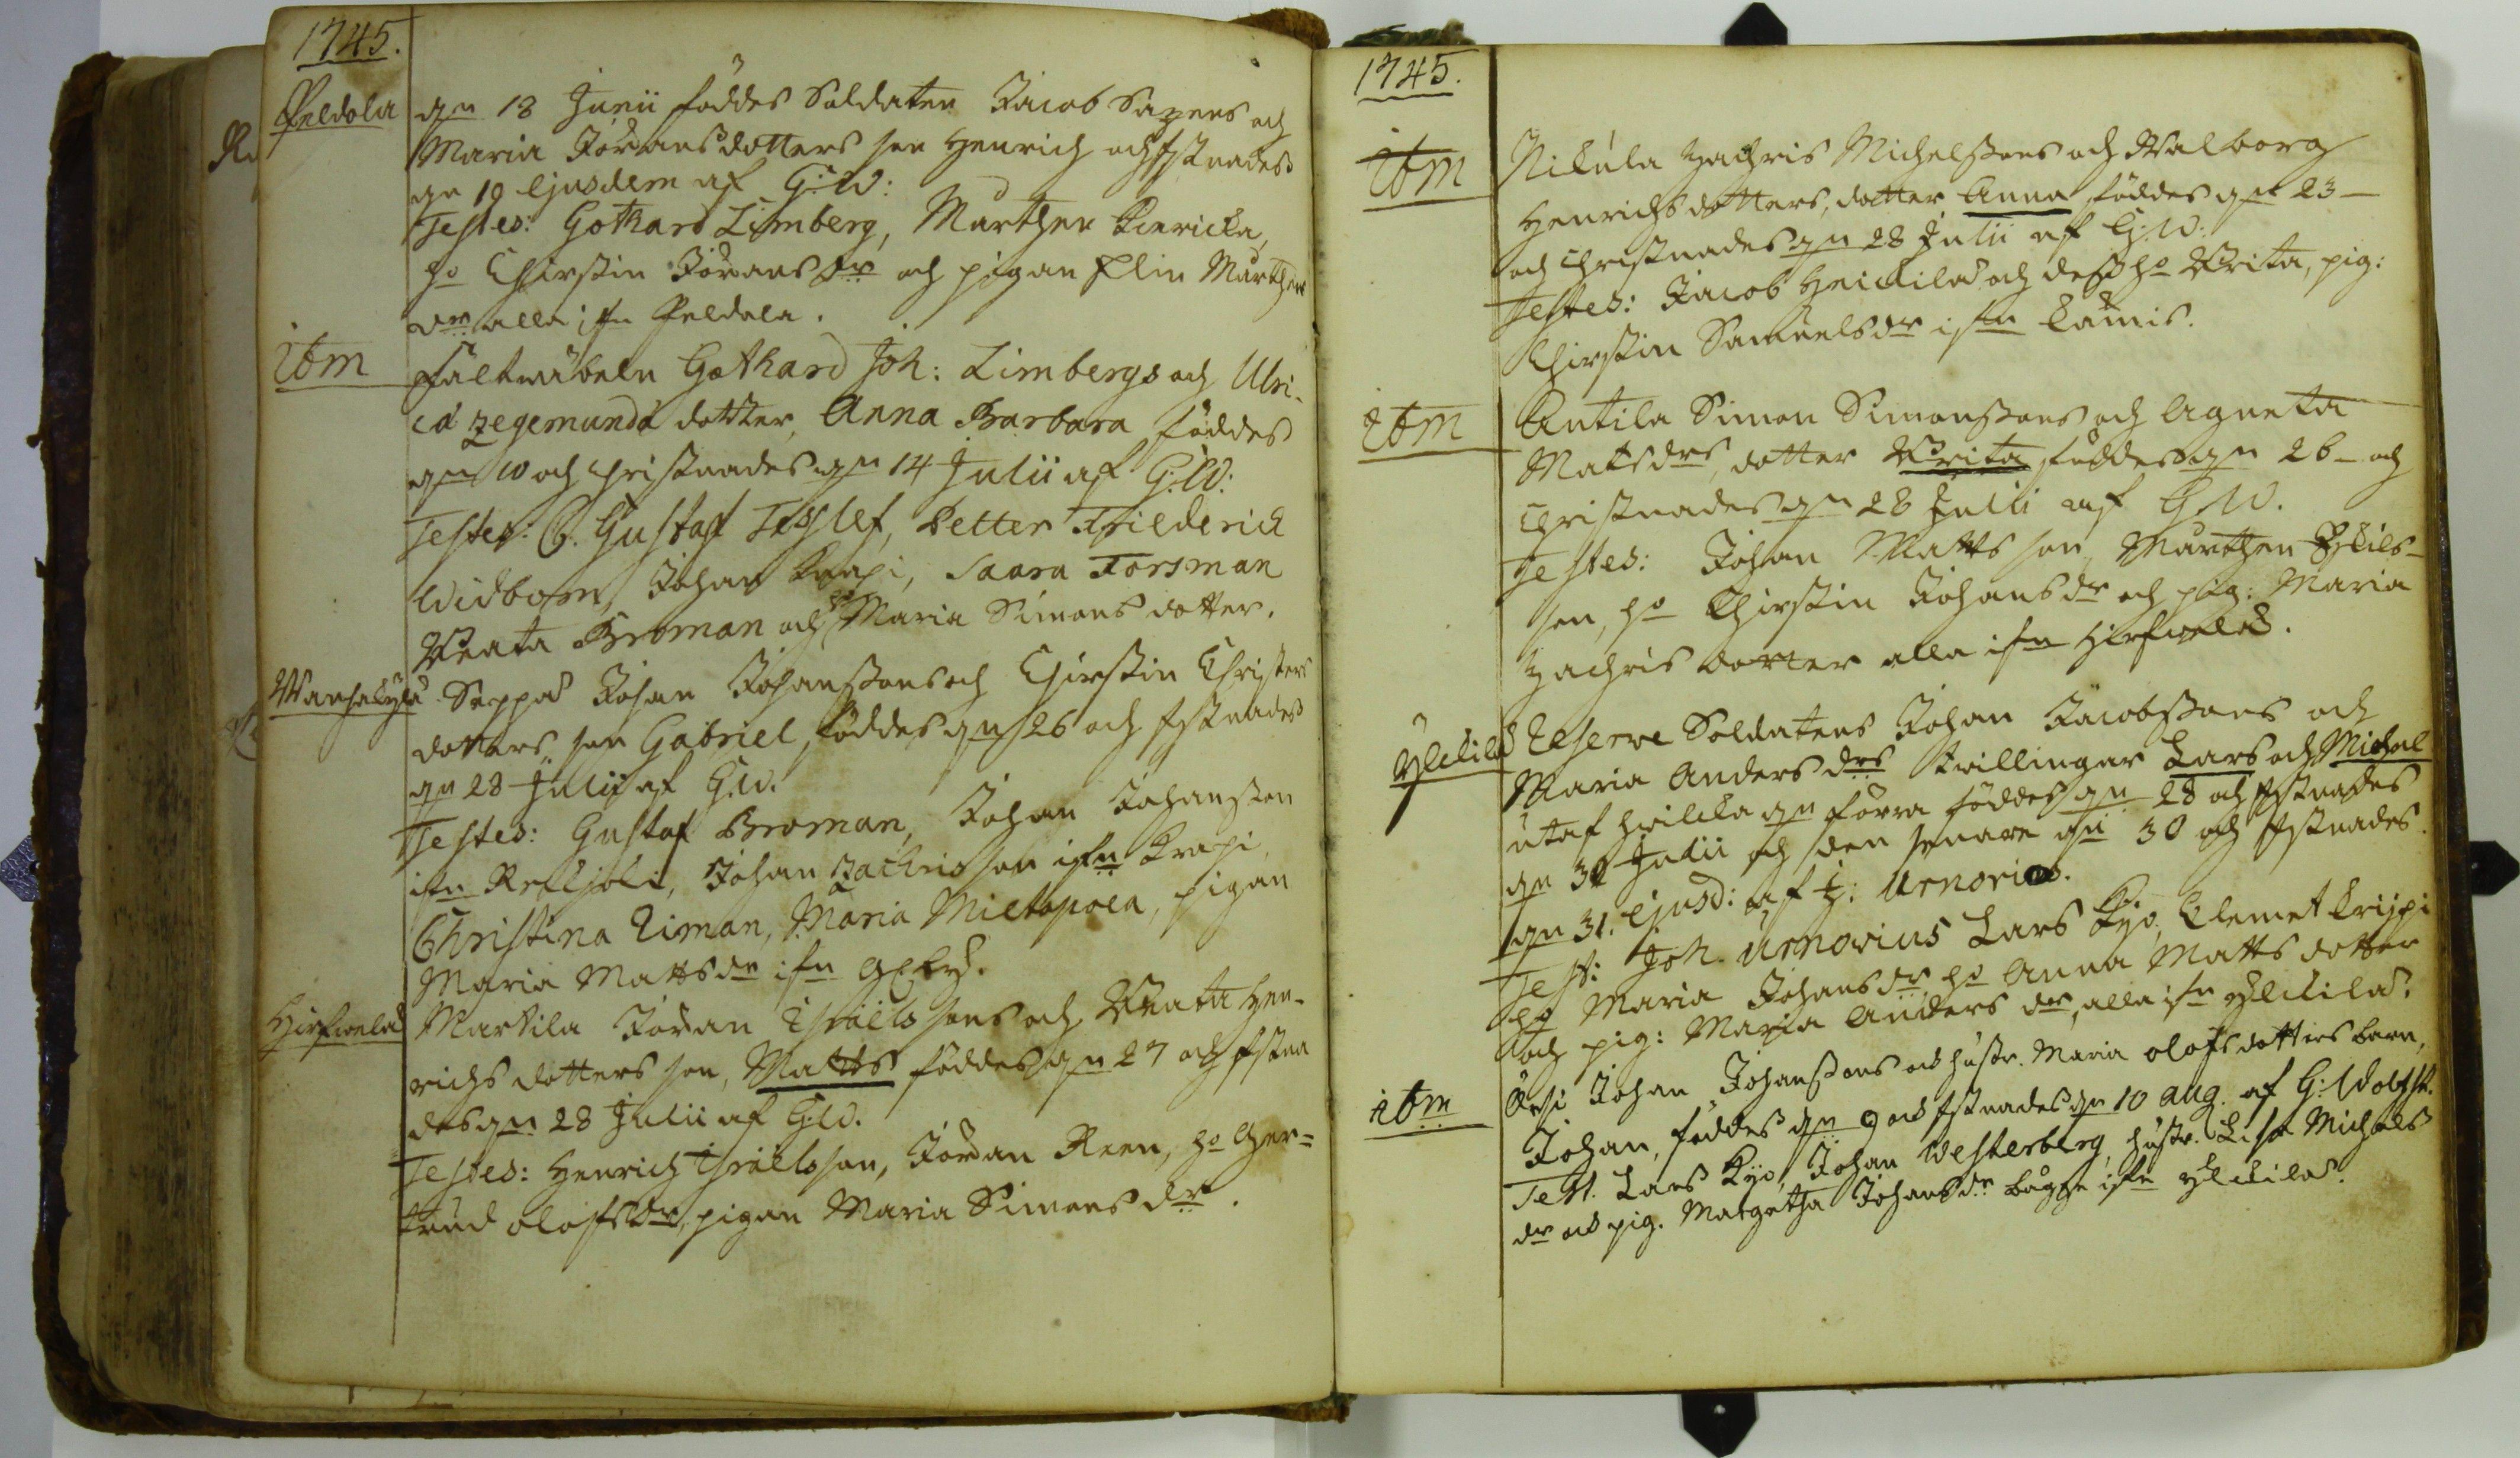 1745.
Peldola den 13 Junii föddes Soldaten Jacob Sazens och
Maria Jöransdotters son Henrich och xstnades
den 19 Ejusdem af G: W:
Testes: Gothard Limberg, Mårthen
ho Chirstin Jöransdr och pigan Elin Mårthens
dr alla ifrn Peldola.
ibm Fältwäbeln Gothard Joh: Limbergs och Ulri-
ca Zegemunds dotter, Anna Barbara föddes
den 10 och Christnades den 14 Julii af G: W:
Testes: C. Gustaf Teslef, Petter Friederich
Widbom, Johan Krapi, Saara Forsman
Beata Broman och ho Maria Simons dotter.
Wanhakylä Seppä Johan Johanssons och Chirstin Christers
dotters, son Gabriel, föddes den 26 och xstnades
den 28 Julii af G. W.
Testes: Gustaf Broman, Johan Johansson
ifrn, Johan Zachrisson ifrn Krapi,
Christina Ziman, Maria, pigan
Maria Mattsdr ifrn
Hirfwelä Markila Jöran Israëls sons och Beata Hen-
richs dotters son, Matts föddes den 27 och xstna
des den 28 Julii af G. W.
Testes: Henrich Israëlsson, Jöran Reen, ho Ger-
trud Olofsdr, pigan Maria Simonsdr.
1745.
ibm Nikula Zachris Michelssons och Walborg
Henrichsdotters, dotter Anna föddes den 23
och Christnades den 28 Julii af G. W.
Testes: Jacob Heickilä och dess ho Brita, pig:
Chirstin Samuelsdr ifrn
ibm Antila Simon Simonssons och Agneta
Matsdrs, dotter Brita föddes den 26 och
Christnades den 28 Julii af G. W.
Testes: Johan Matts son, Mårthen Eskils-
son, ho Chirstin Johansdr och pig: Maria
Zachris dotter alla ifrn Hirfwelä.
Ylikilä Reserve Soldatens Johan Jacobssons och
Maria Andersdrs twillingar Lars och Michel
utaf hwilcka den förra föddes den 28 och xstnades
den 30 Julii och den senare den 30 och xstnades
den 31. Ejusd: af J: Urnovius.
Test: Joh. Urnovius Lars Kyö, Clemet Krijpi
ho Maria Johansdr, ho Anna Matts dotter
och pig: Maria Andersdr, alla ifrn Ylikilä.
ibm Arsi Johan Johanssons och hustr. Maria Olofsdotters barn,
Johan, föddes den 9 och xstnades den 10 Aug. af G: W
Test. Lars Kyö, Johan Westerberg, hustr. Lisa Michels
dr och pig. Margetha Johansdr bägge ifrn Ylikilä.